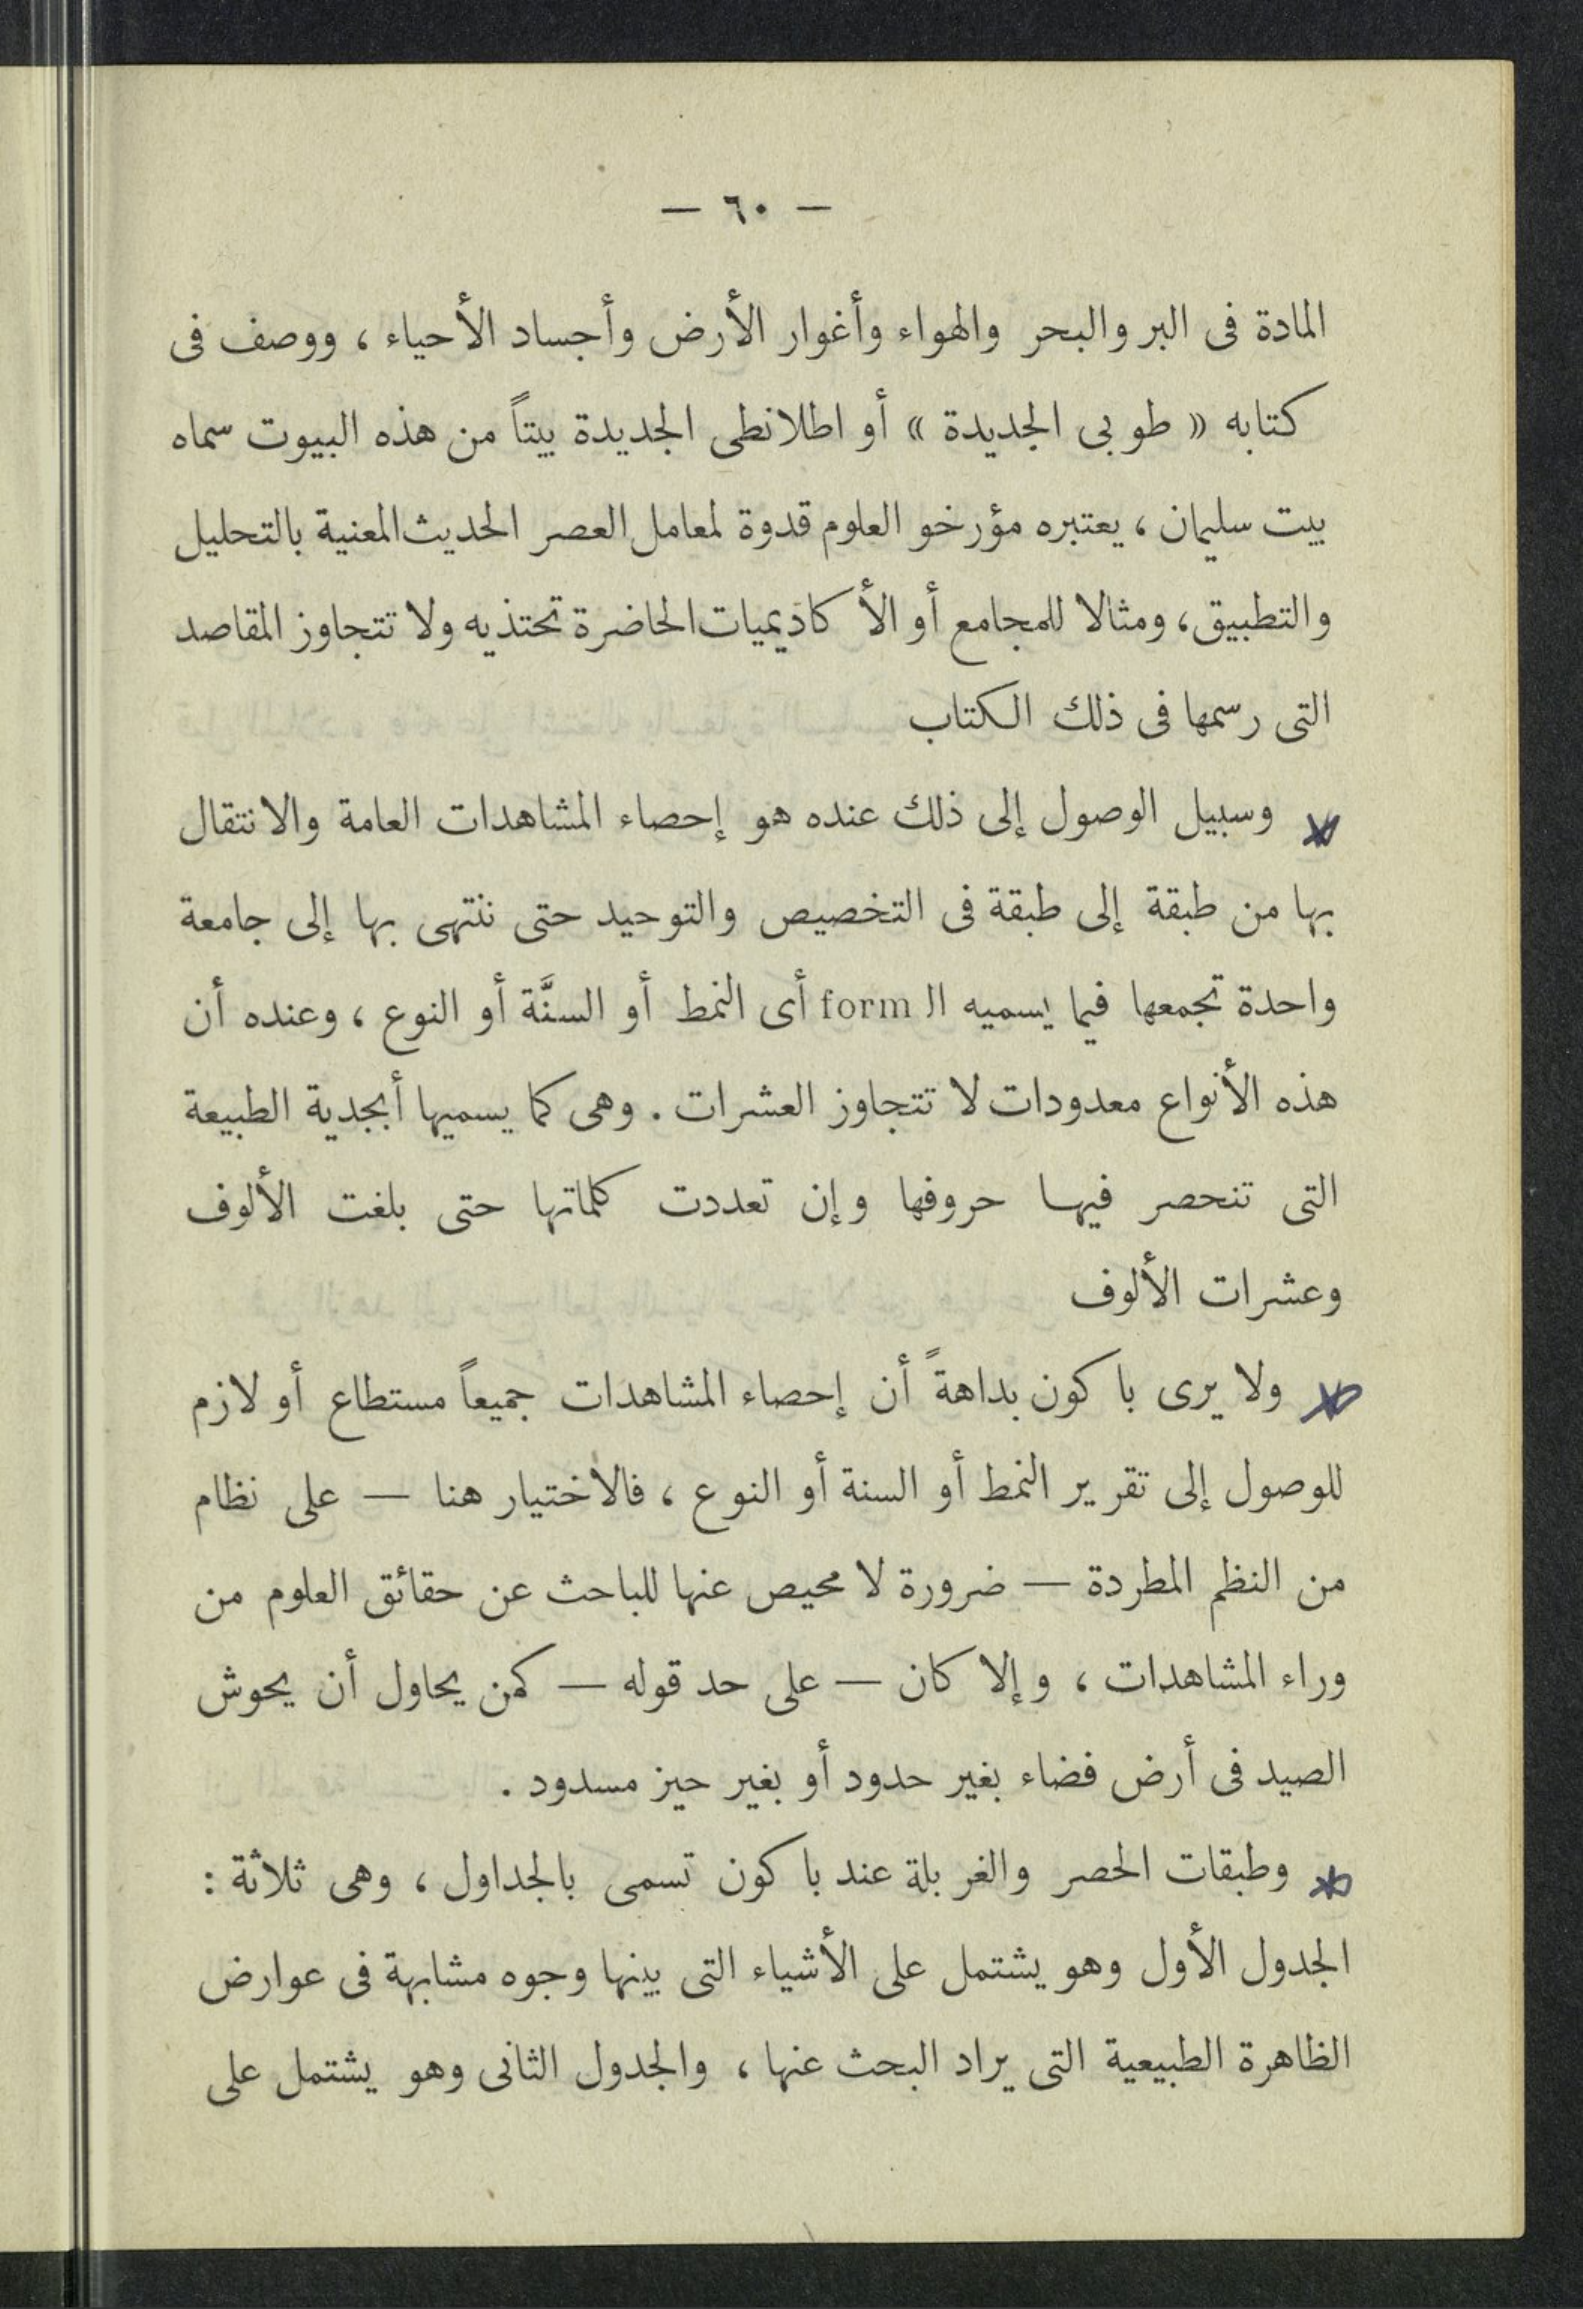 — ٦٠ —
المادة فى البر والبحر والهواء وأغوار الأرض وأجساد الأحياء ، ووصف فى
كتابه « طوبى الجديدة » أو اطلانطى الجديدة بيتاً من هذه البيوت سماه
بيت سليمان ، يعتبره مؤرخو العلوم قدوة لمعامل العصر الحديث المعنية بالتحليل
والتطبيق، ومثالا للمجامع أو الأكاديميات الحاضرة تحتذيه ولا تتجاوز المقاصد
التى رسمها فى ذلك الكتاب
وسبيل الوصول إلى ذلك عنده هو إحصاء المشاهدات العامة والانتقال
بها من طبقة إلى طبقة فى التخصيص والتوحيد حتى ننتهى بها إلى جامعة
واحدة تجمعها فيما يسميه الـ form أى النمط أو السنَّة أو النوع ، وعنده أن
هذه الأنواع معدودات لا تتجاوز العشرات . وهى كما يسميها أبجدية الطبيعة
التى تنحصر فيها حروفها وإن تعددت كلماتها حتى بلغت الألوف
وعشرات الألوف
ولا يرى باكون بداهةً أن إحصاء المشاهدات جميعاً مستطاع أو لازم
للوصول إلى تقرير النمط أو السنة أو النوع ، فالاختيار هنا — على نظام
من النظم المطردة — ضرورة لا محيص عنها للباحث عن حقائق العلوم من
وراء المشاهدات ، وإلا كان — على حد قوله — كمن يحاول أن يحوش
الصيد فى أرض فضاء بغير حدود أو بغير حيز مسدود .
وطبقات الحصر والغربلة عند باكون تسمى بالجداول ، وهى ثلاثة :
الجدول الأول وهو يشتمل على الأشياء التى بينها وجوه مشابهة فى عوارض
الظاهرة الطبيعية التى يراد البحث عنها ، والجدول الثانى وهو يشتمل على